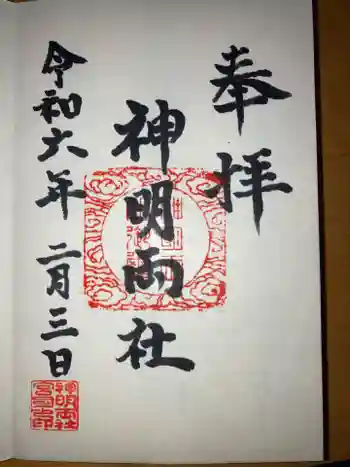 奉拝
神明両社
令和六年 二月三日
神明両社
宮司之印